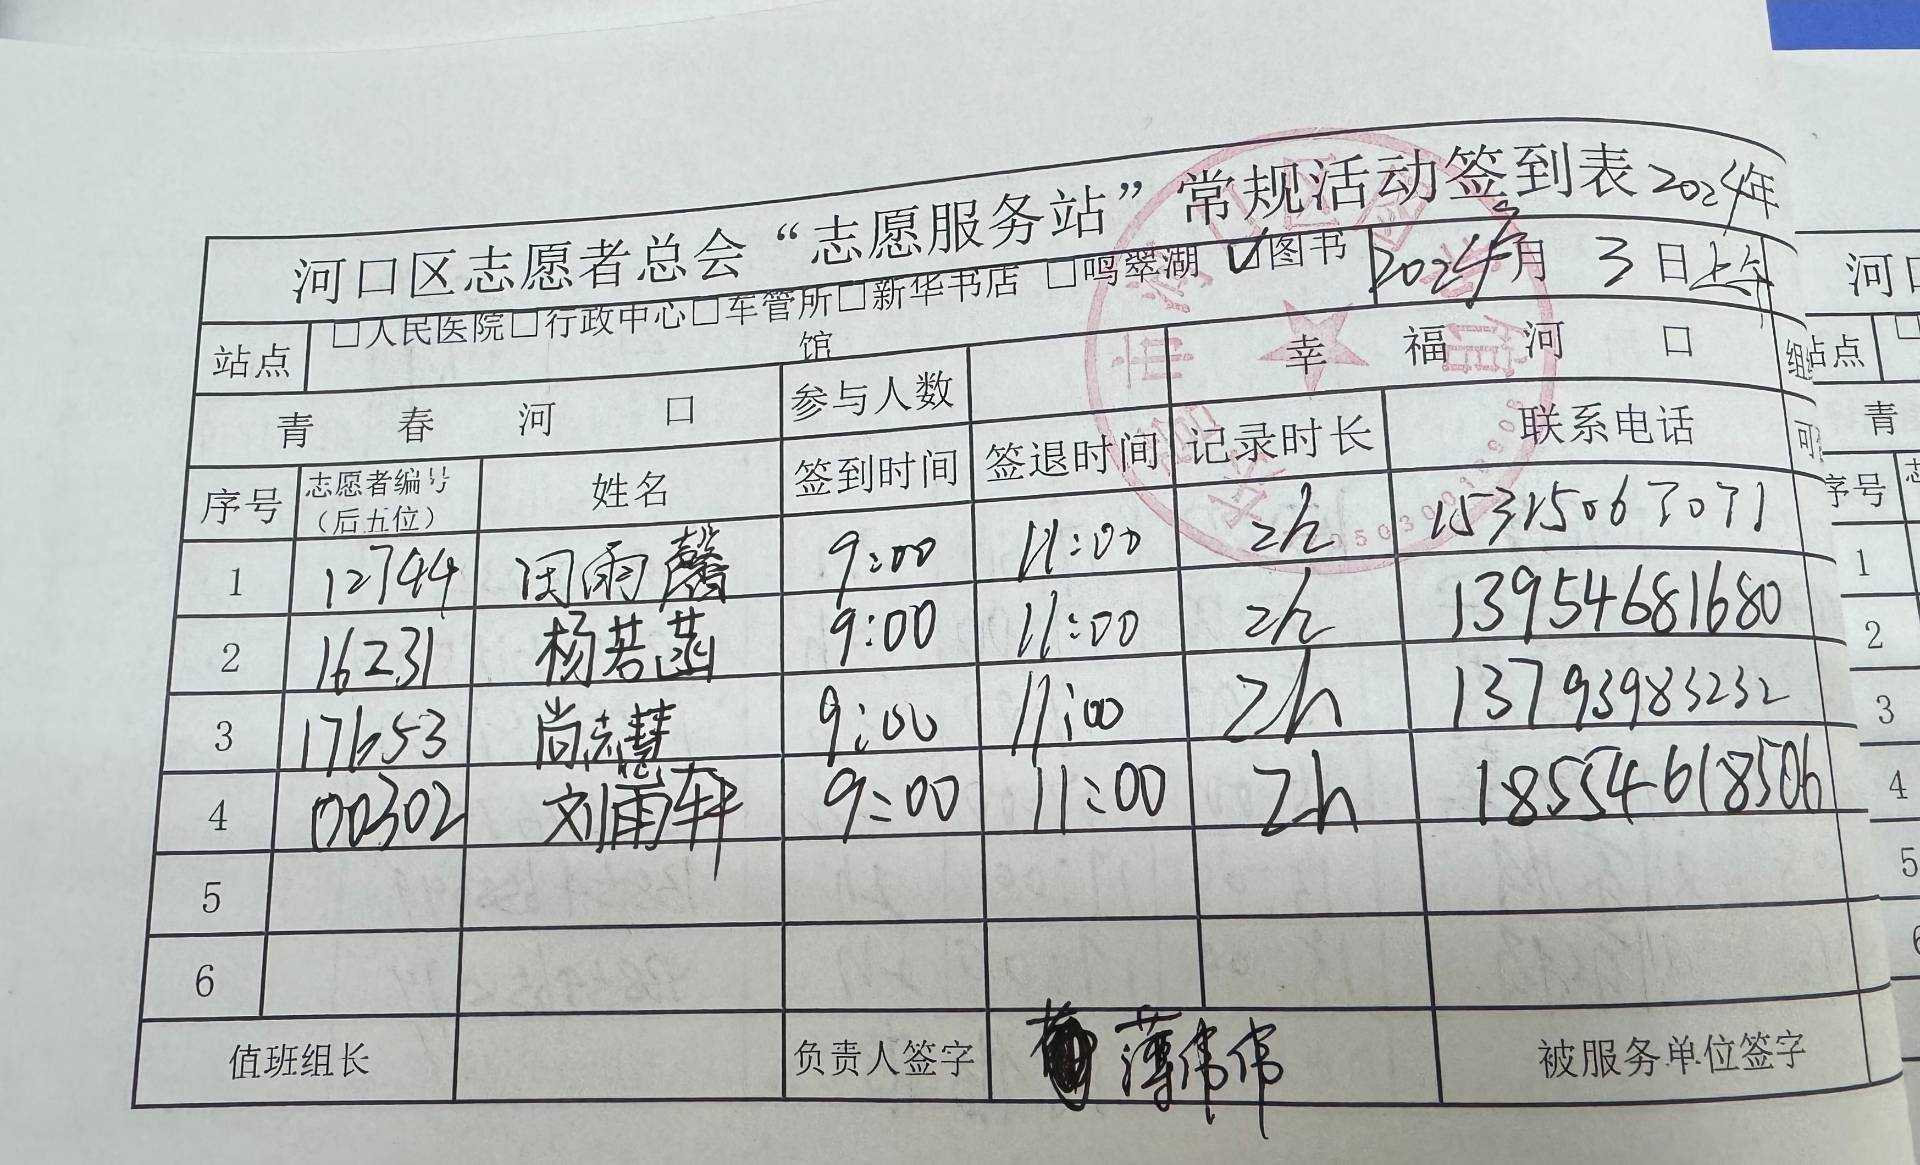 河口区志愿者总会“志愿服务站”常规活动签到表 2024年
站点 □人民医院□行政中心□车管所□新华书店 □鸣翠湖 ☑图书馆 2024年3月3日上午
青春河口 参与人数 幸福河口
序号 志愿者编号（后五位） 姓名 签到时间 签退时间 记录时长 联系电话
1 12744 闵雨馨 9:00 11:00 2h 15315067071
2 16231 杨若菡 9:00 11:00 2h 13954681680
3 17653 尚志慧 9:00 11:00 2h 13793983232
4 00302 刘雨轩 9:00 11:00 2h 18554618506
5
6
值班组长 负责人签字 薄伟伟 被服务单位签字
河口
站点 □
青
序号
1
2
3
4
5